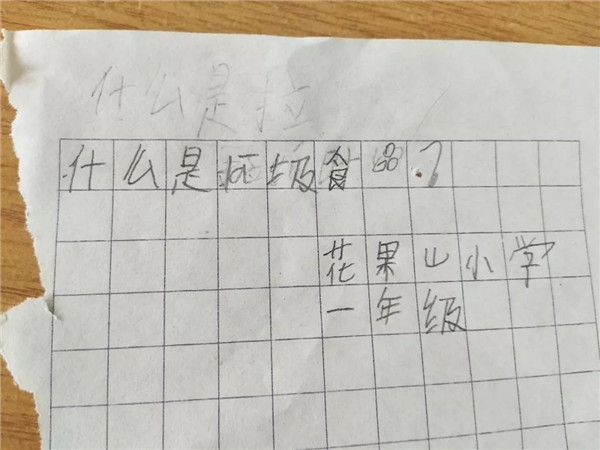 什么是拉
什么是垃圾食品？
花果山小学
一年级